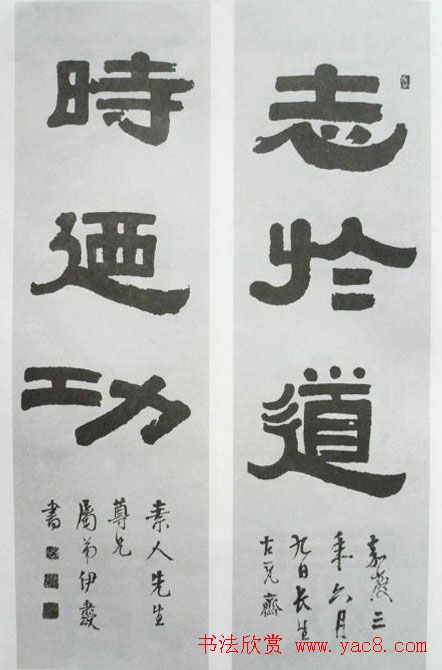 志於道
嘉慶三
年六月
九日長生
古瓦齋
時迺功
素人先生
尊兄
屬弟伊秉綬
書
书法欣赏 www.yac8.com